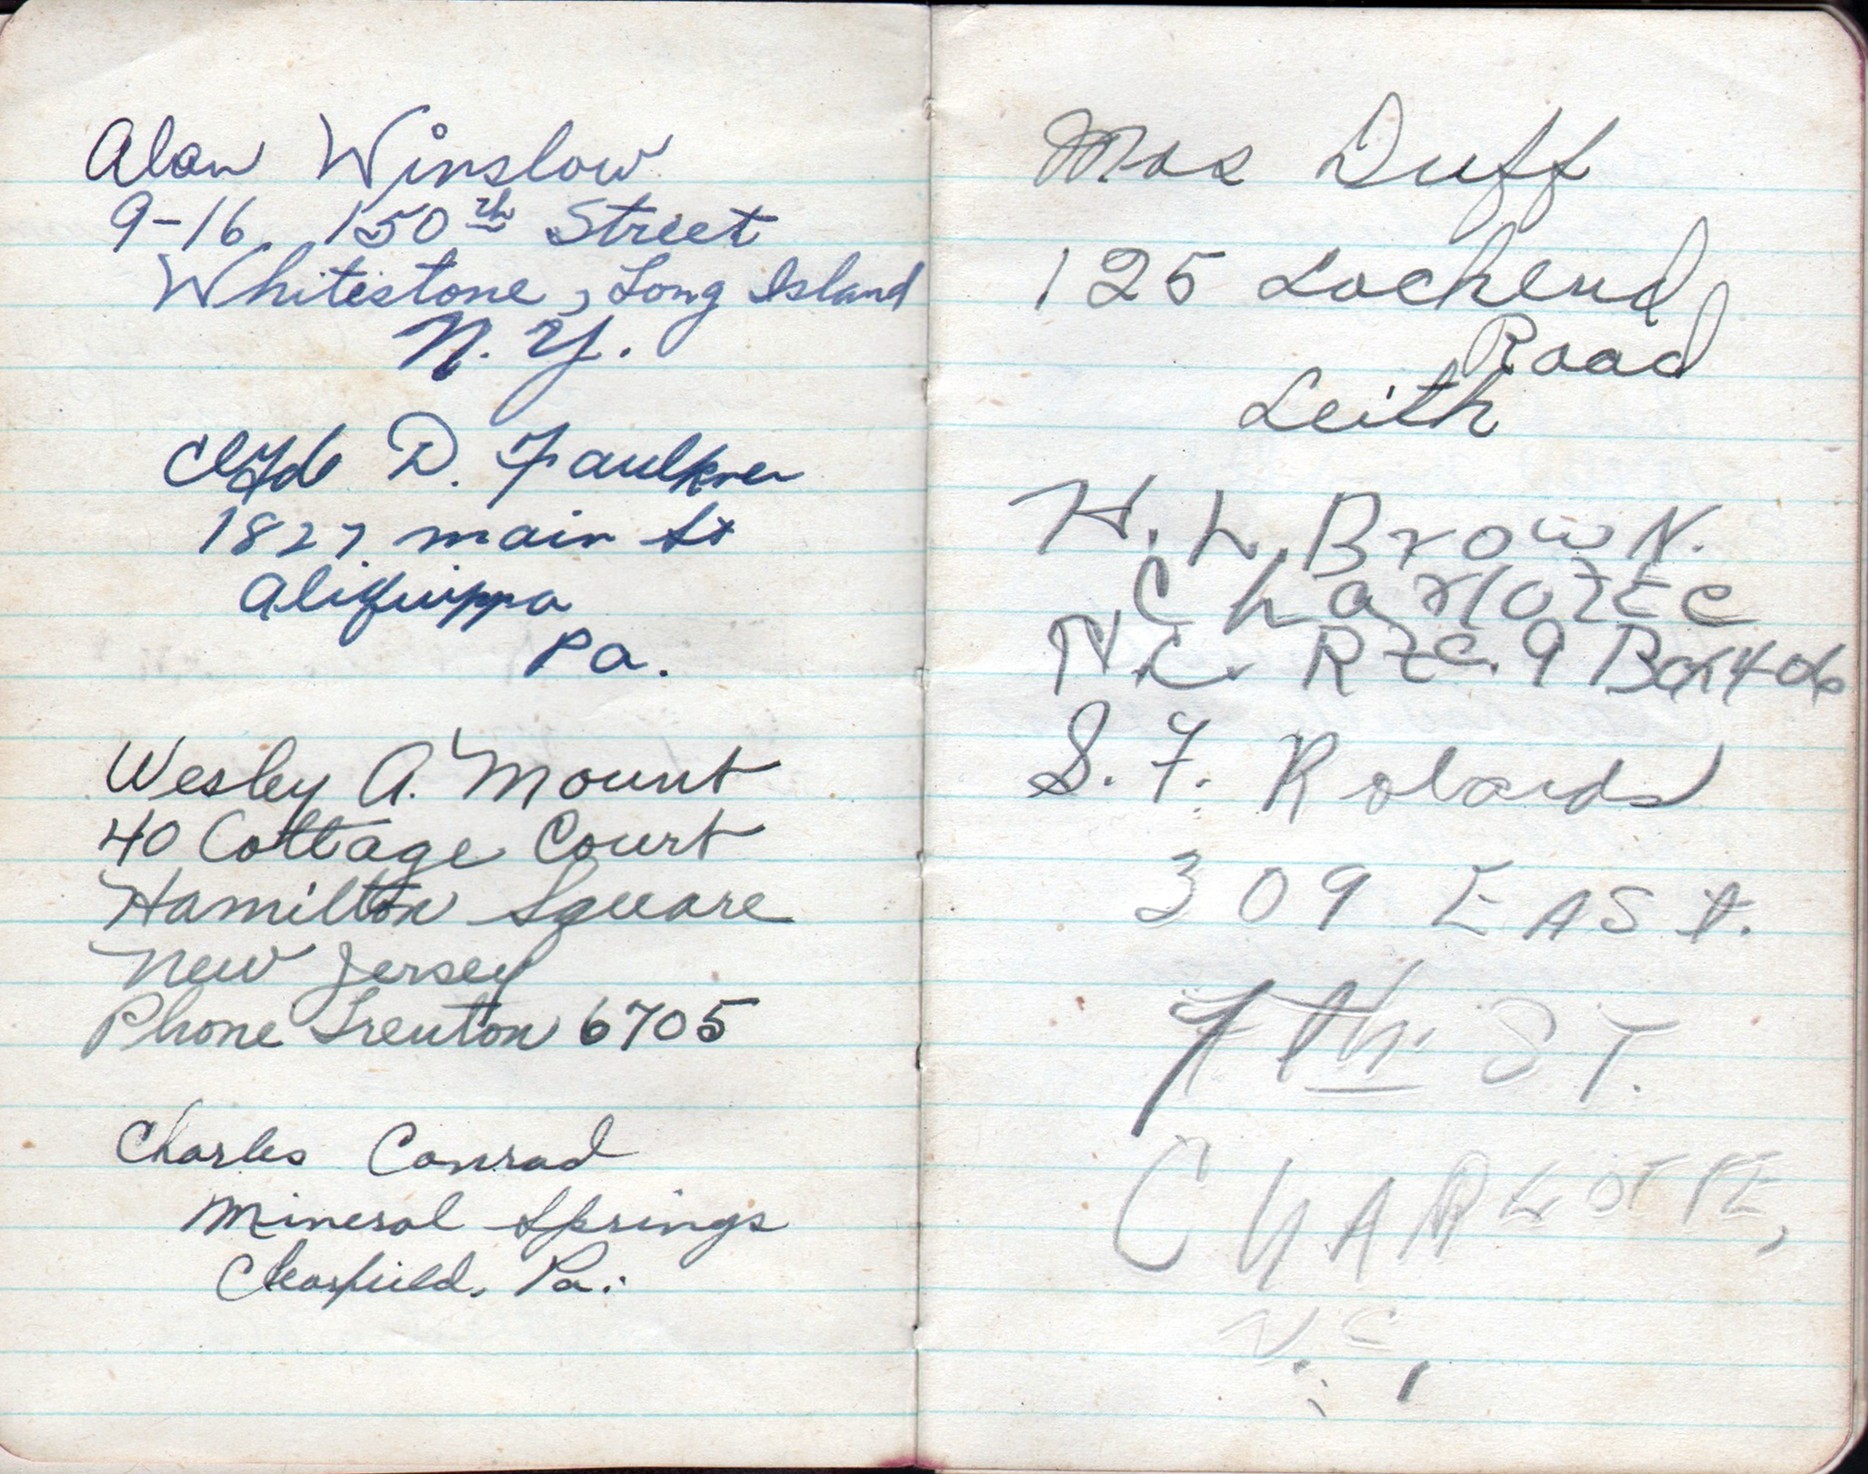 Alan Winslow
9-16 150th Street
Whitestone, Long Island
N.Y.
Clyde D. Faulkner
1827 main St
Aliquippa
Pa.
Wesley A. Mount
40 Cottage Court
Hamilton Square
New Jersey
Phone Trenton 6705
Charles Conrad
Mineral Springs
Clearfield, Pa.
Duff
125 Lochend
Road
Leith
H. L. Brown.
Charlotte
N.C. Rte. 9 Box 406
S. F. Robards
309 EAST.
7th. ST.
CHARLOTTE,
N.C.